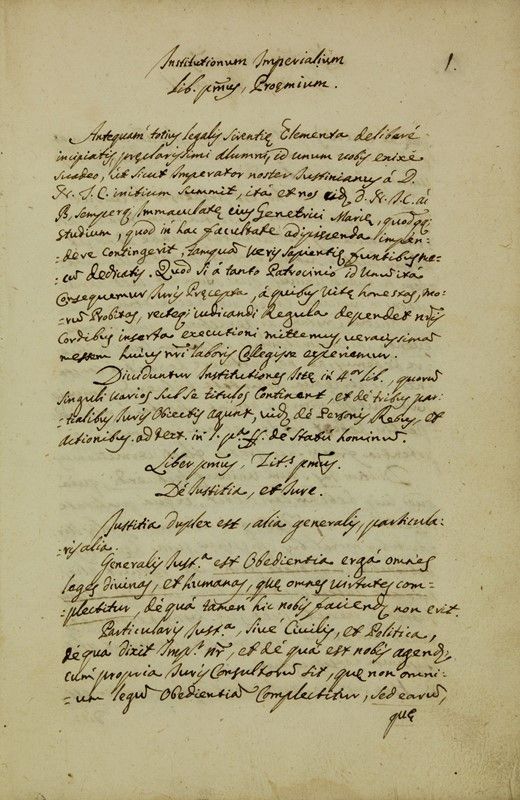 Institutionum Imperialium
1.
Lib. pmus, Proęmium.
Antequam totius legalis scientię Elementa deliberé
incipiatis pręclarissimi Alumni, id unum vobis enixé
suadeo, ut sicut Imperator noster Iustinianus á D.
N. I. C. initium summit, itá et nos á D. N. I. C. ac
B. semperq Immaculatę eius Genetrici Marię, quodq
studium, quod in hac facultate adipiscenda impen-
dere contingerit, tamquam veris sapientię funtibus
dedicatis. Quod si á tanto Patrocinio id unum itá
Consequemur Iuris Pręcepta, á quibus vitę honestas, mo-
rum Probitas, rectęq iudicandi Regula dependet
Cordibus inserta executioni mittemus, veracissimá
messem huius nri laboris Collegisse experiemur.
Dividuntur Institutiones Istę in 4or lib., quorum
singuli varios sub se titulos Continent, et dé tribus par-
tialibus Iuris Obiectis agunt, dé Personis Rebus, et
Actionibus ad text. in l. pa. ff. dé Statu hominum.
Liber pmus, Tits pmus.
Dé Iustitia, et Iure.
Iustitia duplex est, alia generalis, particula-
ris alia.
Generalis Iusta est Obedientia ergá omnes
leges divinas, et humanas, quę omnes virtutes com-
plectitur, dé quá tamen hic nobis faciend non erit.
Particularis Justa, sivé Civilis, et Politica,
dé quá dixit Impr nr, et dé quá est nobis agend,
cum propria Iuris Consultorum sit, quę non omni-
um legum Obedientia Complectitur, sed earum,
quę